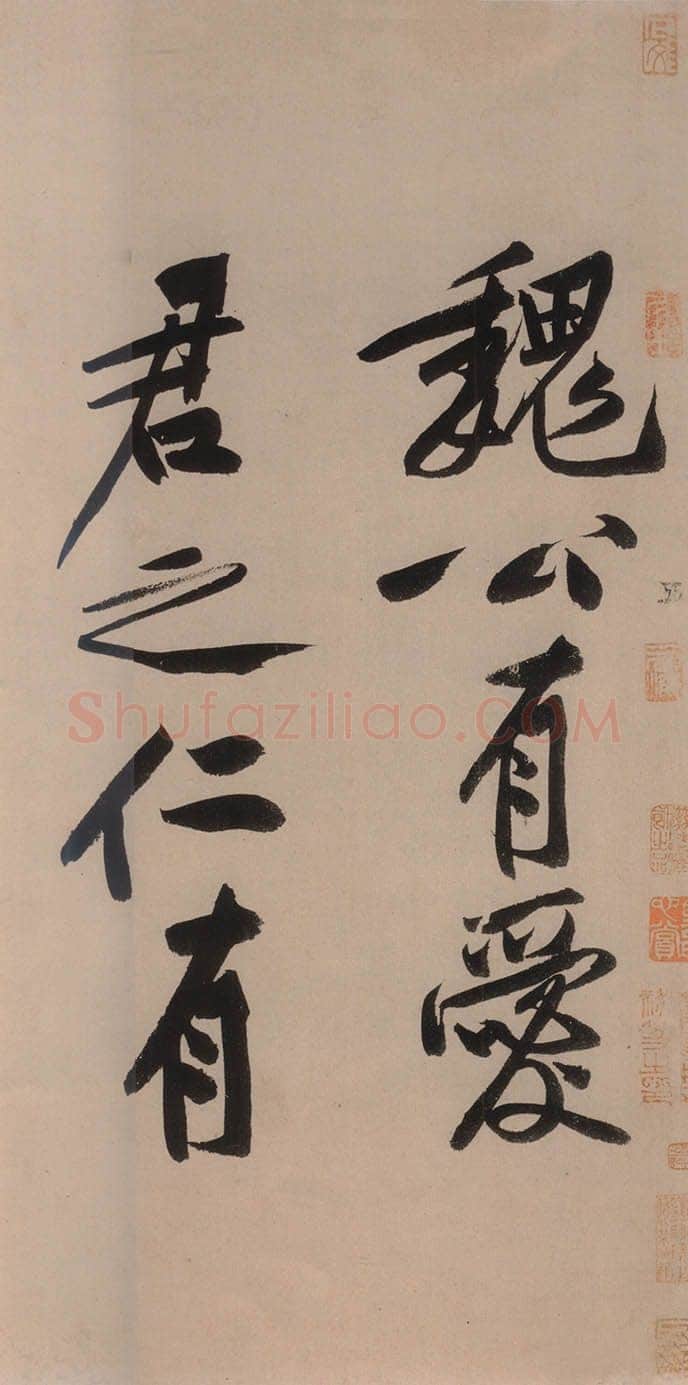 魏公有愛
君之仁有
Shufaziliao.COM